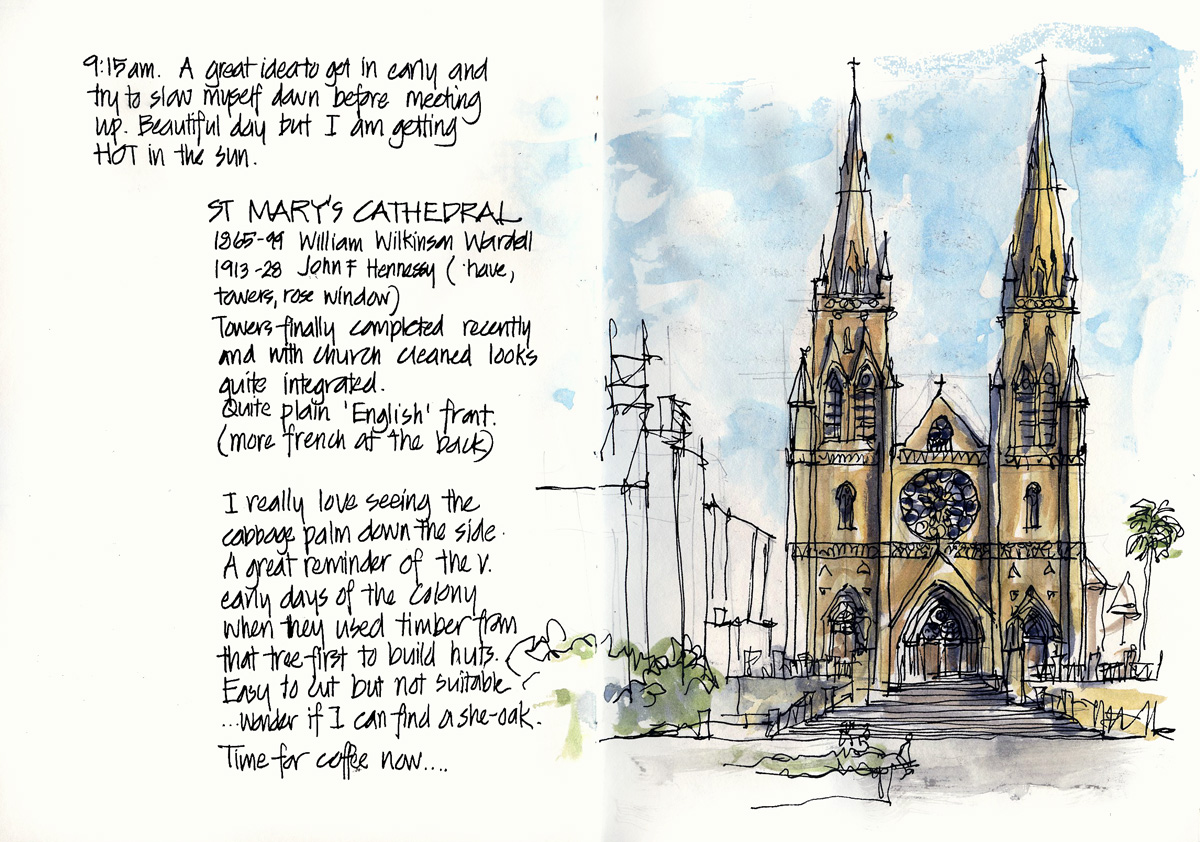 9:15am. A great idea to get in early and
try to slow myself down before meeting
up. Beautiful day but I am getting
HOT in the sun.
ST MARY'S CATHEDRAL
1865-99 William Wilkinson Wardell
1913-28 John F Hennessy (nave,
towers, rose window)
Towers finally completed recently
and with church cleaned looks
quite integrated.
Quite plain 'English' front.
(more french at the back)
I really love seeing the
cabbage palm down the side.
A great reminder of the v.
early days of the colony
when they used timber from
that tree first to build huts.
Easy to cut but not suitable
...wonder if I can find a she-oak.
Time for coffee now....